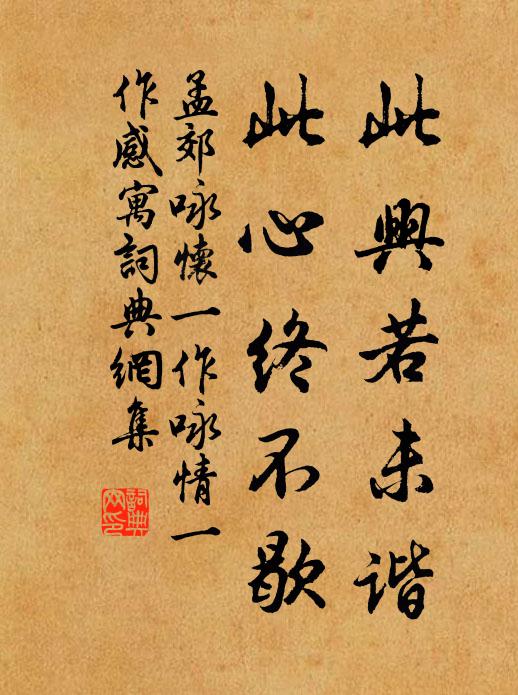 此興若未谐
此心终不歇
孟郊咏懷一作咏情一
作感寓詞典網集
詞典網印